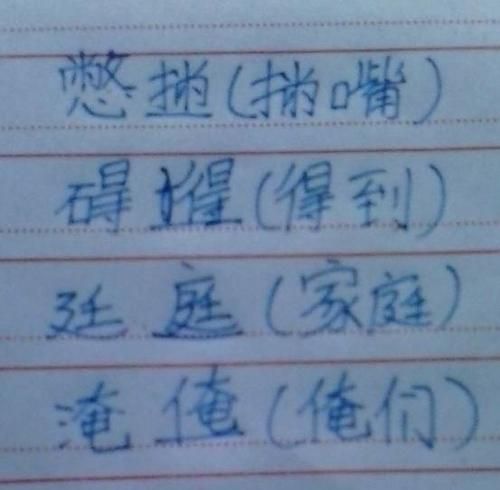 憋 (嘴)
碍 得(得到)
廷 庭(家庭)
淹 俺(俺们)